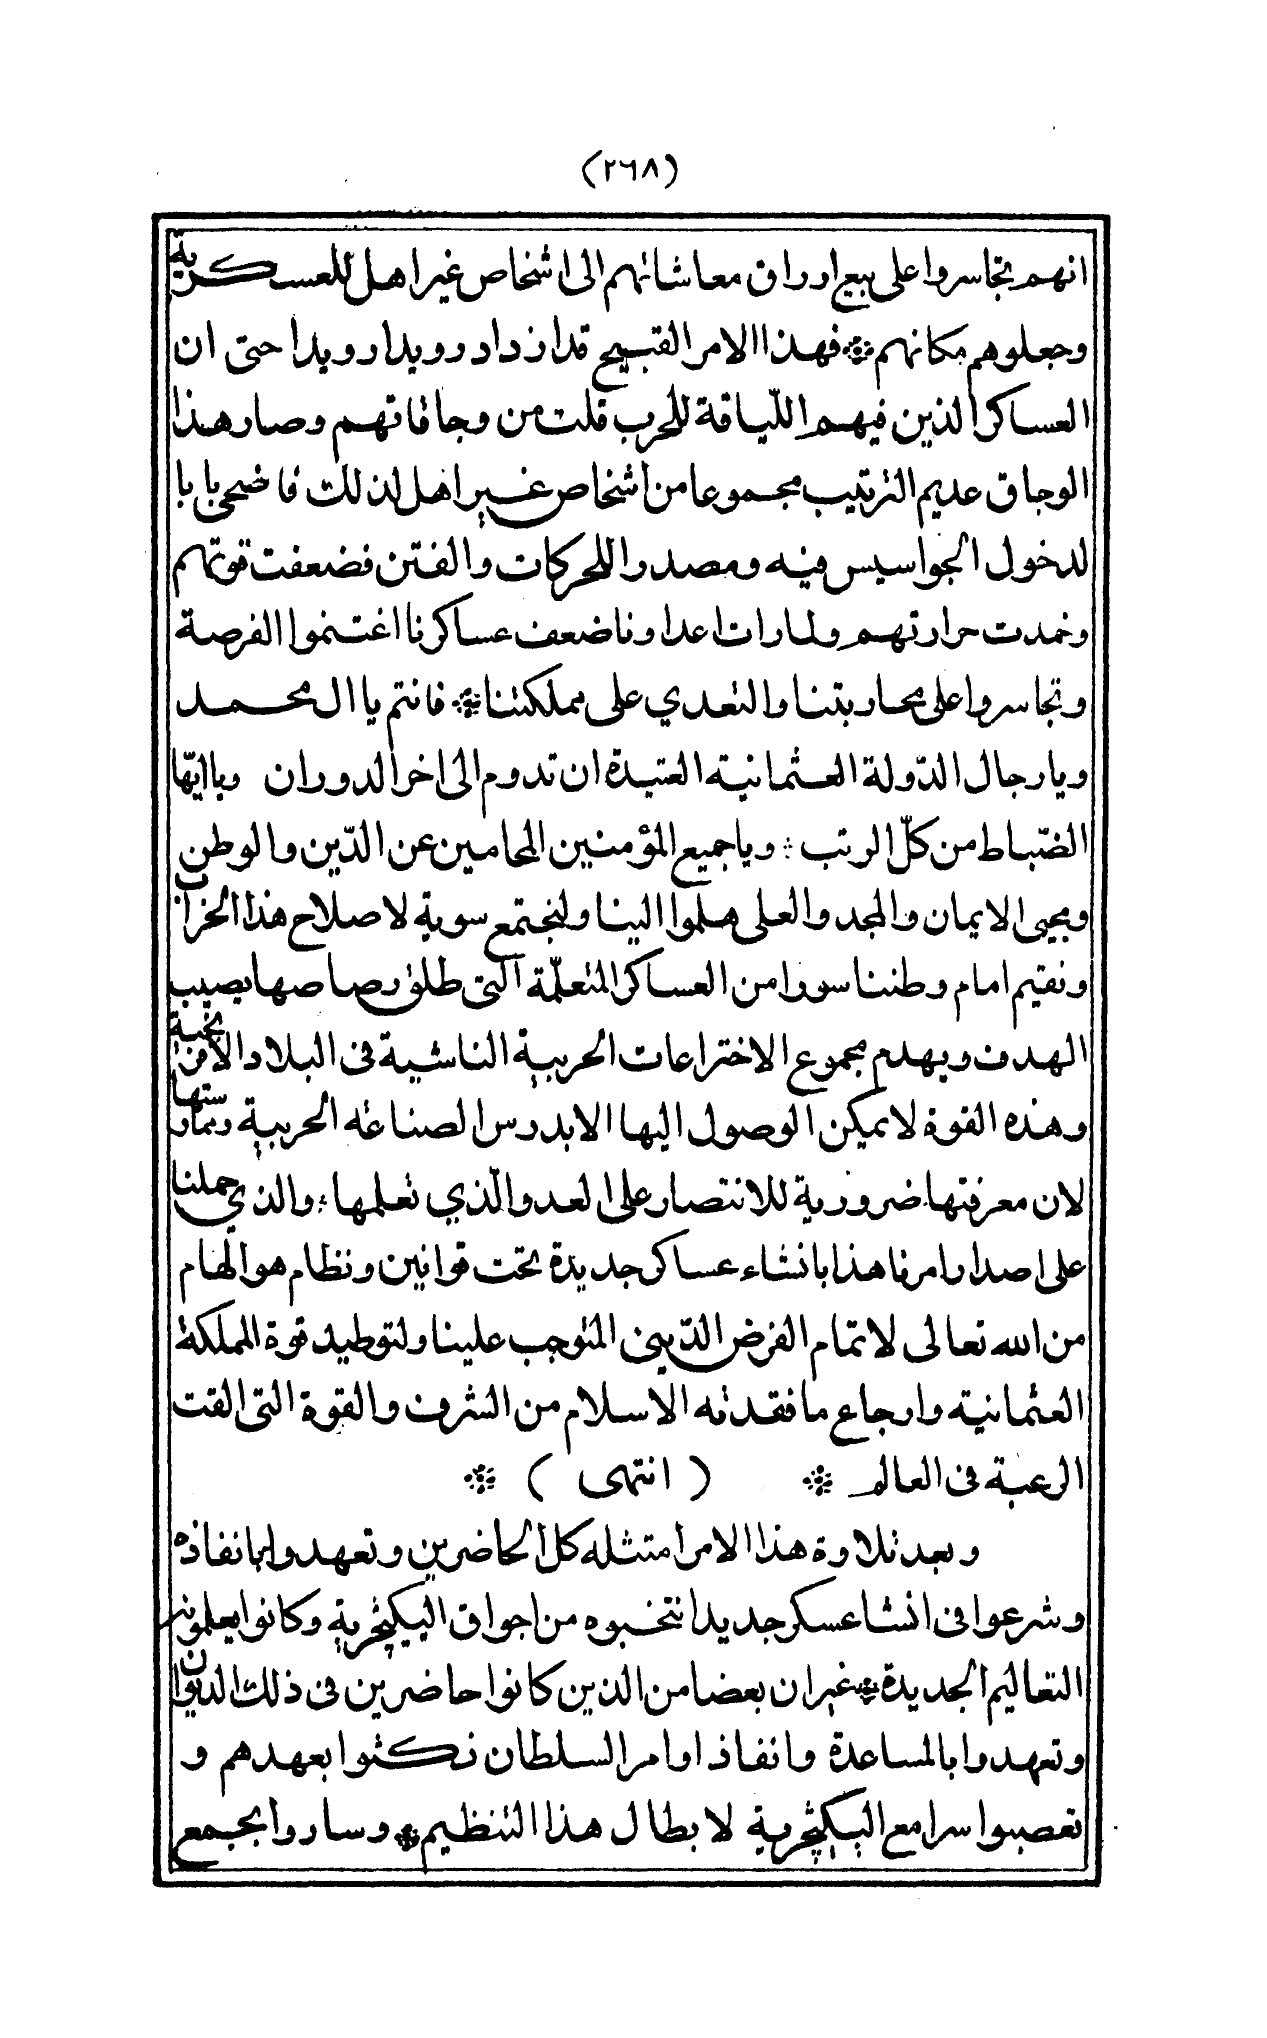 (٢٦٨)
انهم تجاسروا على بيع اوراق معاشاتهم الى اشخاص غير اهل للعسكرية
وجعلوهم مكانهم ۞ فهذا الامر القبيح قد ازداد رويدا رويدا حتى ان
العساكر الذين فيهم اللّياقة للحرب قلت من وجاقاتهم وصار هذا
الوجاق عديم الترتيب مجموعا من اشخاص غير اهل لذلك فاضحى بابا
لدخول الجواسيس فيه ومصدرا للحركات والفتن فضعفت قوتهم
وخمدت حرارتهم ولما رات اعداونا ضعف عساكرنا اغتنموا الفرصة
وتجاسروا على محاربتنا والتعدي على مملكتنا ۞ فانتم يا ال محمد
ويا رجال الدّولة العثمانية العتيدة ان تدوم الى اخر الدوران وياايّها
الضّباط من كلّ الرتب ؞ ويا جميع المؤمنين المحامين عن الدّين والوطن
ومحبى الايمان والمجد والعلى هلموا الينا ولنجتمع سوية لاصلاح هذا الخراب
ونقيم امام وطننا سورا من العساكر المتعلّمة التى طلق رصاصها يصيب
الهدف ويهدم مجموع الاختراعات الحربية الناشية فى البلاد الافرنجية
وهذه القوة لا يمكن الوصول اليها الا بدرس الصناعه الحربية وممارستها
لان معرفتها ضرورية للانتصار على العدو الّذي تعلمها ؞ والذي حملنا
على اصدار امرنا هذا بانشاء عساكر جديدة تحت قوانين ونظام هو الهام
من الله تعالى لاتمام الفرض الدّينى المتوجب علينا ولتوطيد قوة المملكة
العثمانية وارجاع ما فقدته الاسلام من الشرف والقوة التى القت
الرعبة فى العالم ۞ ( انتهى ) ۞
وبعد تلاوة هذا الامر امتثله كل الحاضرين وتعهدوا بانفاذه
وشرعوا فى انشا عسكر جديد انتخبوه من اجواق اليكيچرية وكانوا يعلمونهم
التعاليم الجديدة ۞ غير ان بعضا من الذين كانوا حاضرين فى ذلك الديوان
وتعهدوا بالمساعدة وانفاذ اوامر السلطان نكثوا بعهدهم و
تعصبوا سرا مع اليكيچرية لابطال هذا التنظيم ۞ وساروا بجمع